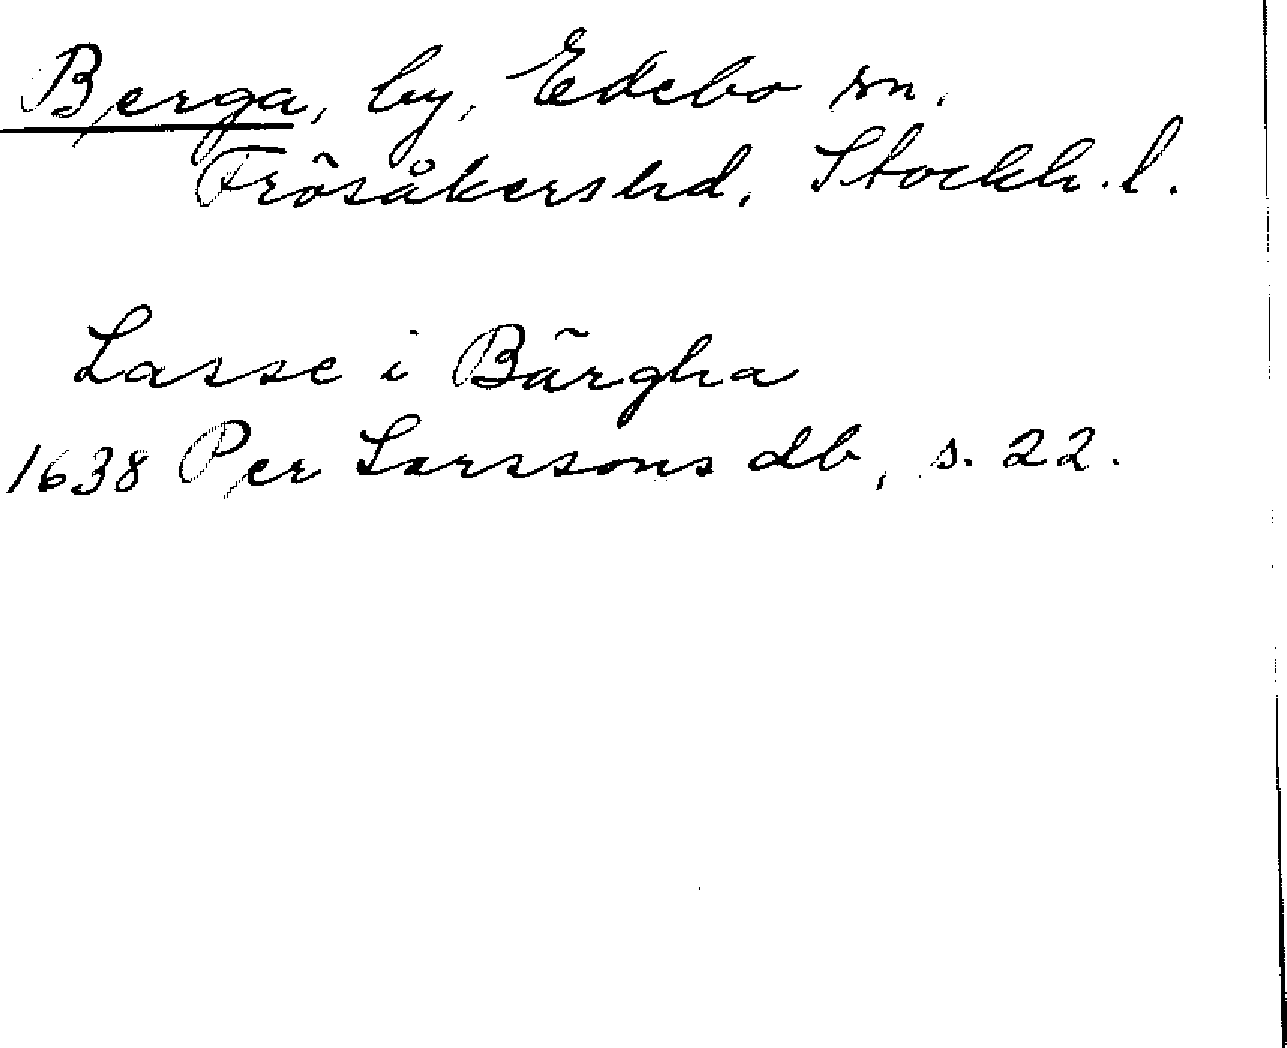 Berga, by, Edebo sn.
Frösåkershd, Stockh. l.
Lasse i Bärgha
1638 Per Larssons db, s. 22.